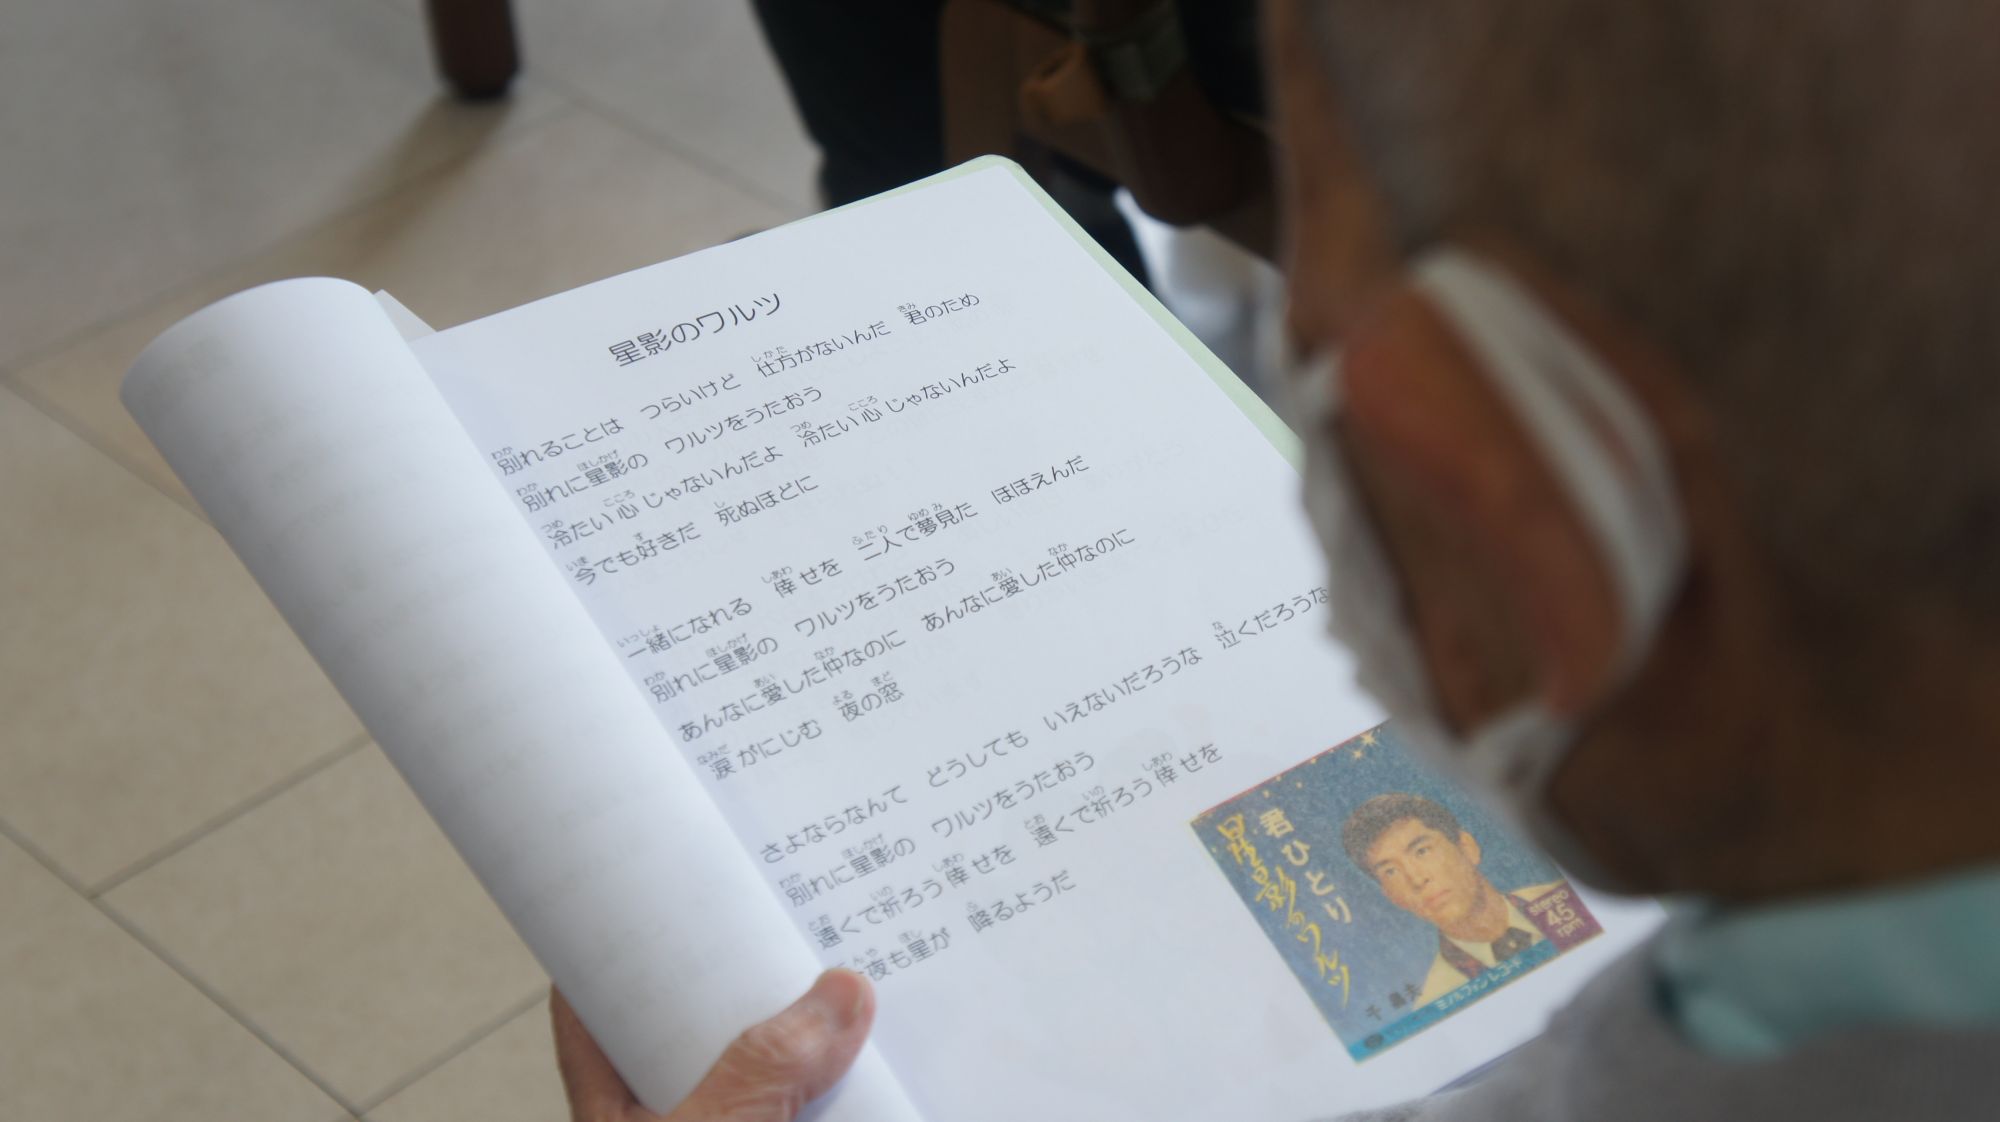 星影のワルツ
別れることは　つらいけど　仕方がないんだ　君のため
別れに星影の　ワルツをうたおう
冷たい心じゃないんだよ　冷たい心じゃないんだよ
今でも好きだ　死ぬほどに
一緒になれる　倖せを　二人で夢見た　ほほえんだ
別れに星影の　ワルツをうたおう
あんなに愛した仲なのに　あんなに愛した仲なのに
涙がにじむ　夜の窓
さよならなんて　どうしても　いえないだろうな　泣くだろうな
別れに星影の　ワルツをうたおう
遠くで祈ろう倖せを　遠くで祈ろう倖せを
今夜も星が　降るようだ
君ひとり
星影のワルツ
千 昌夫
stereo
45
rpm
ミノルフォンレコード